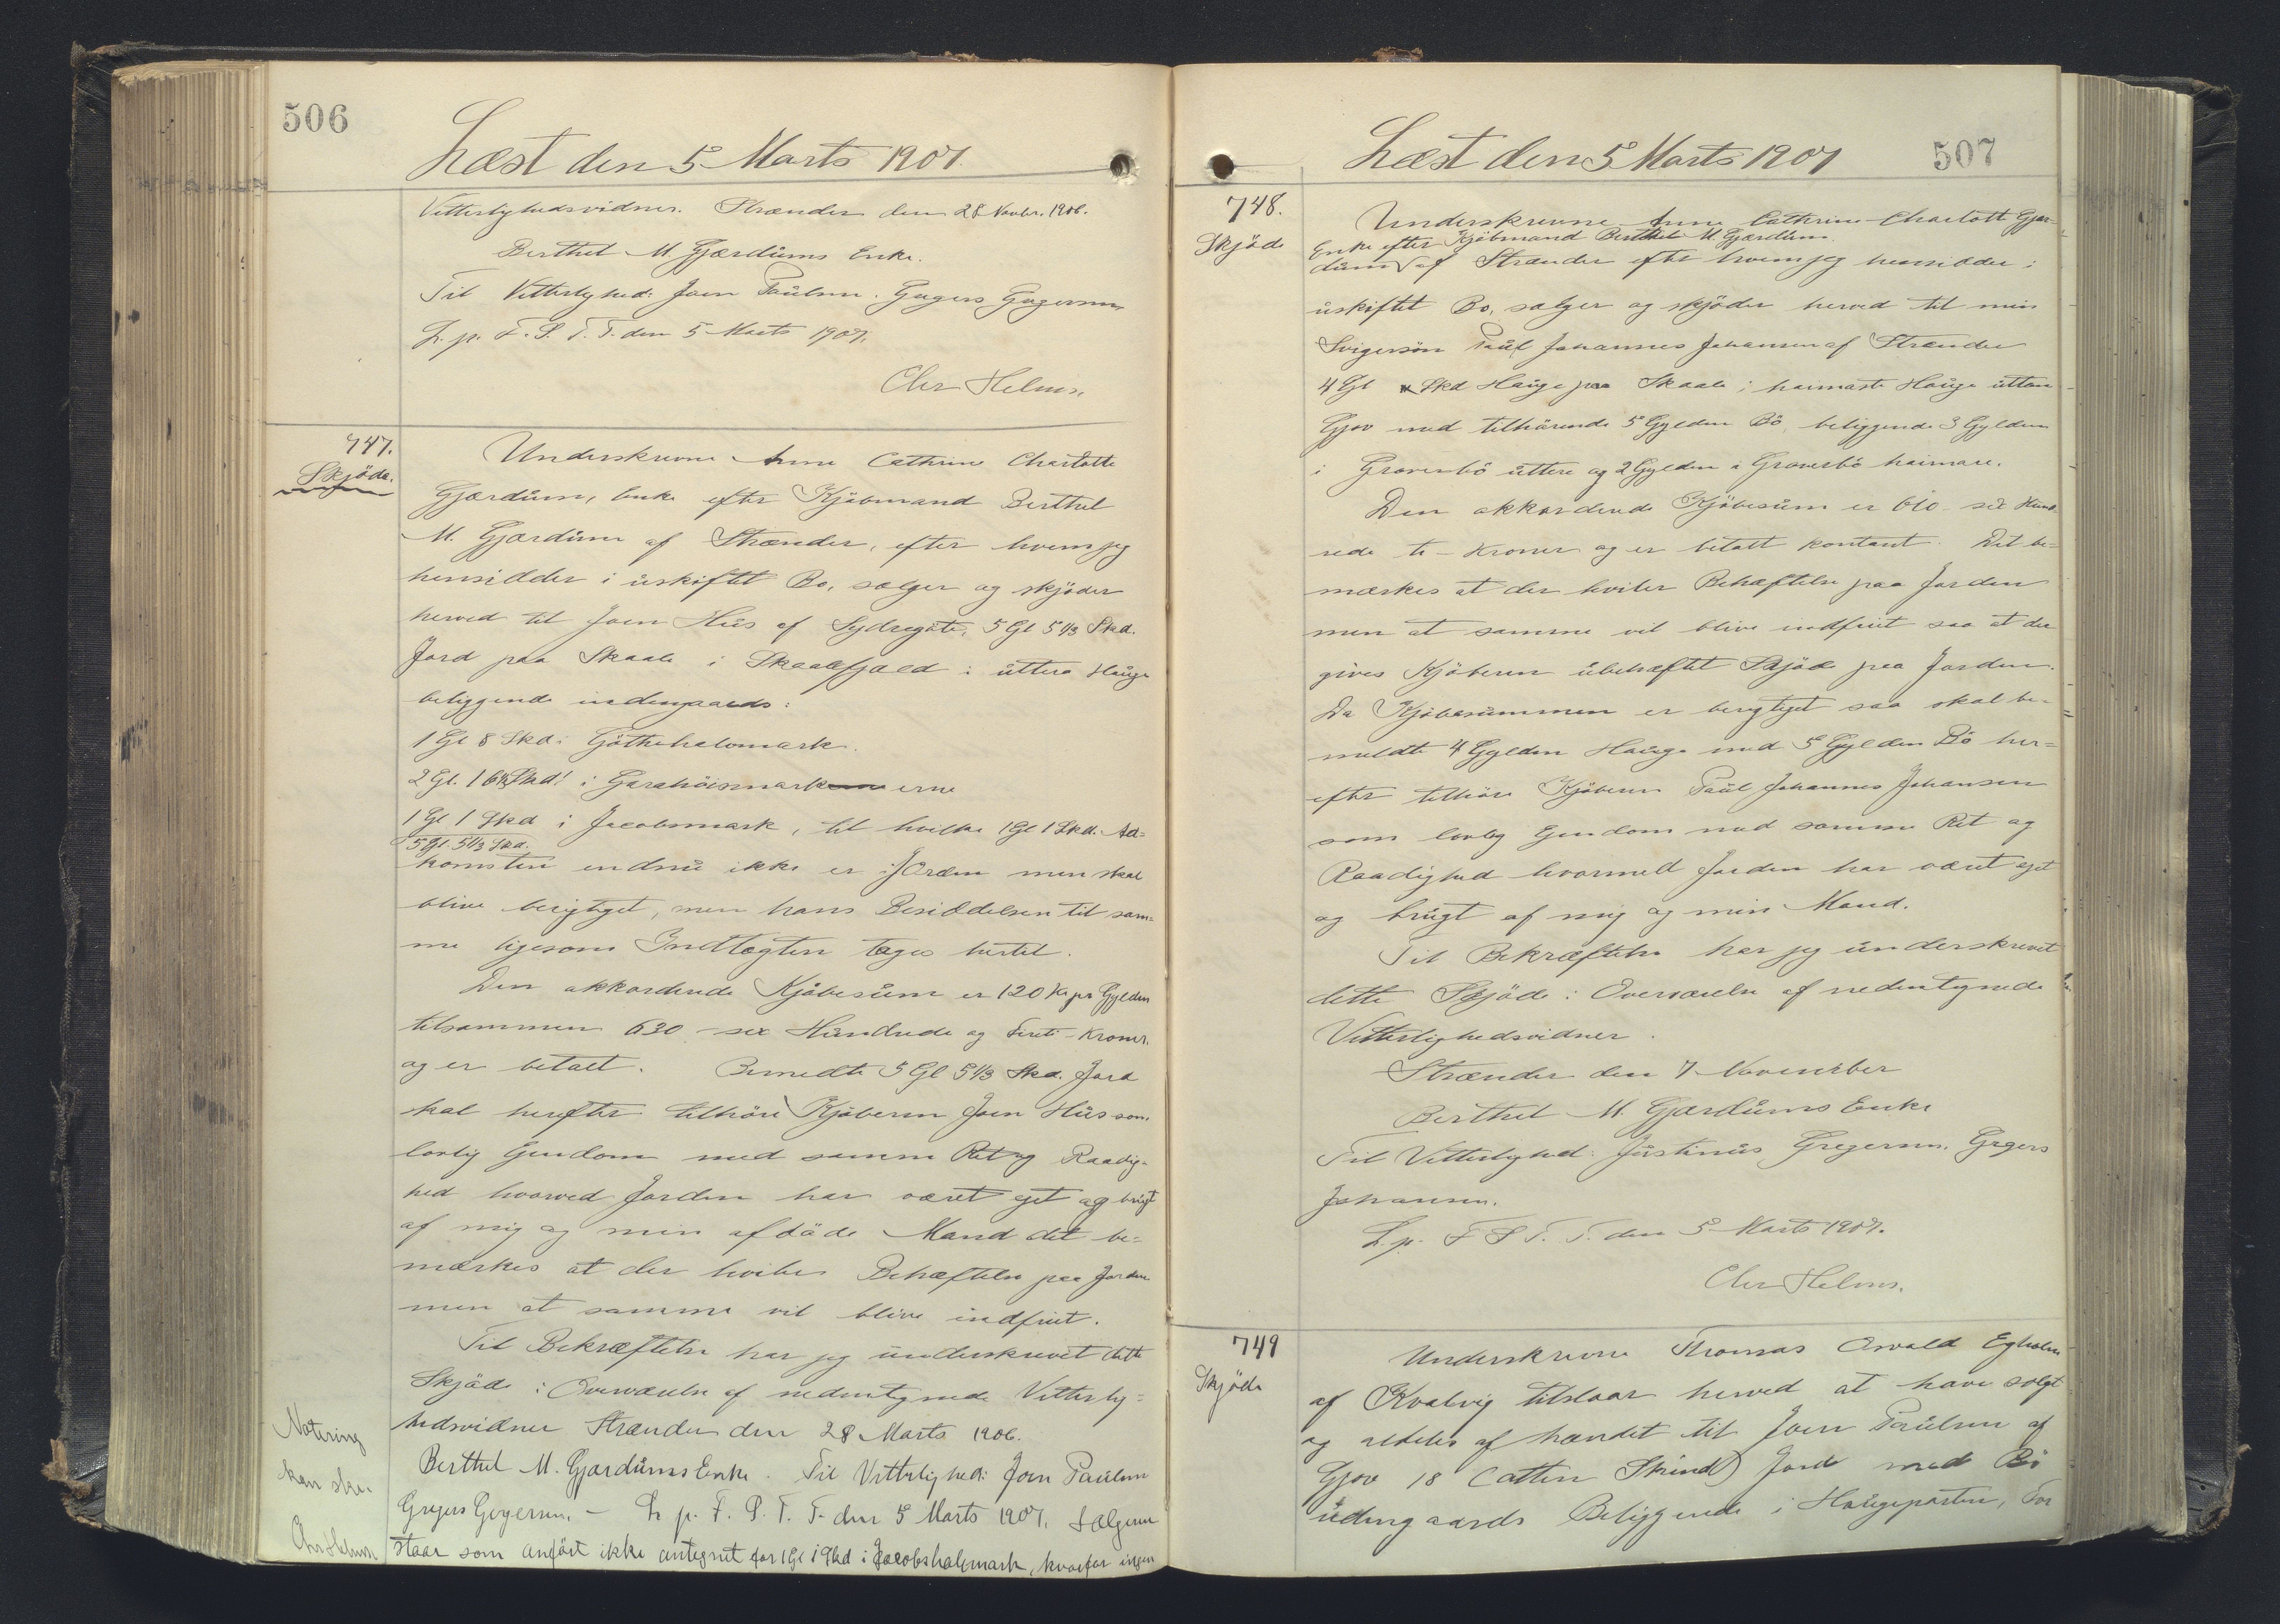 506
Læst den 5 Marts 1907.
Vitterlighedsvidner. Strænder den 28 Novbr. 1906.
Berthel M. Gjærdûms Enke.
Til Vitterlighed: Joen Paulsen. Gregers Gregersen
L. p. F. S. T. T. den 5 Marts 1907.
Chr Helms.
747.
Skjöde.
Underskrevne Anne Cathrine Charlotte
Gjærdûm, Enke efter Kjöbmand Berthel
M. Gjærdûm af Strænder, efter hvem jeg
hensidder i ûskiftet Bo, sælger og skjöder
herved til Joen Hûs af Sydregöte, 5 Gl 5 1/3 Skd.
Jord paa Skaale i Skaalefjæld i ûttera Haûge
beliggende indengaards:
1 Gl 8 Skd i Göthehalsmark.
2 Gl. 16 1/3 Skd! i Garahöismarkerne
1 Gl 1 Skd i Jacobsmark, til hvilke 1 Gl 1 Skd. Ad-
5 Gl. 5 1/3 Skd.
komsten endnû ikke er i Orden men skal
blive berigtiget, men hans Besiddelsen til sam-
me ligesom Indtægten tages hertil.
Den akkorderede Kjöbesûm er 120 Kr pr Gylden
tilsammen 630 - sex Hûndrede og Tireti - Kroner
og er betalt. Bemeldte 5 Gl 5 1/3 Skd. Jord
skal herefter tilhöre Kjöberen Joen Hûs som
lovlig Eiendom med samme Ret og Raadig-
hed hvorved Jorden har været ejet og brûgt
af mig og min afdöde Mand det be-
mærkes at der hviler Behæftelse paa Jorden
men at samme vil blive indfriet.
Til Bekræftelse har jeg ûnderskrevet dette
Skjöde i Overværelse af nedentegnede Vitterlig-
hedsvidner Strænder den 28 Marts 1906.
Berthel M. Gjærdûms Enke. Til Vitterlighed: Joen Paulsen
Gregers Gregersen. - L. p. F. S. T. T. den 5 Marts 1907. Sælgeren
staar som anfört ikke antegnet for 1 Gl 1 Skd i Jacobshalsmark, hvorfor ingen
Notering
kan ske.
Chr Helms.
507
Læst den 5 Marts 1907
748.
Skjöde
Underskrevne Anne Cathrine Charlott Gjær-
Enke efter Kjöbmand Berthel M. Gjærdûm
dûm af Strænder efter hvem jeg hensidder i
ûskiftet Bo, sælger og skjöder herved til min
Svigersön Paûl Johannes Johansen af Strænder
4 Gl Skd Hauge paa Skaale i haimasta Haûge ûttan
Gjov med tilhörende 5 Gylden Bö, beliggende 3 Gylden
i Gravesbö ûttere og 2 Gylden i Gravesbö haimare.
Den akkorderede Kjöbesûm er 610 - sex Hûnd-
rede ti - Kroner og er betalt kontant. Det be-
mærkes at der hviler Behæftelse paa Jorden
men at samme vil blive indfriet saa at der
gives Kjöberen ûbehæftet Skjöde paa Jorden.
Da Kjöbesûmmen er berigtiget saa skal be-
meldte 4 Gylden Haûge med 5 Gylden Bö her-
efter tilhöre Kjöberen Paûl Johannes Johansen
som lovlig Eiendom med samme Ret og
Raadighed hvormed Jorden har været ejet
og brûgt af mig og min Mand.
Til Bekræftelse har jeg ûnderskrevet
dette Skjöde i Overværelse af nedentegnede
Vitterlighedsvidner.
Strænder den 7 November
Berthel M. Gjærdûms Enke
Til Vitterlighed: Jûstinûs Gregersen. Gregers
Johansen.
L. p. F S T. T. den 5 Marts 1907.
Chr Helms.
749
Skjöde
Underskrevne Thomas Osvald Egholm
af Kvalvig tilstaar herved at have solgt
og aldeles afhændet til Joen Paûlsen af
Gjov 18 Catten Skind Jord med Bö
ûdengaards Beliggende i Haûgeparten, for